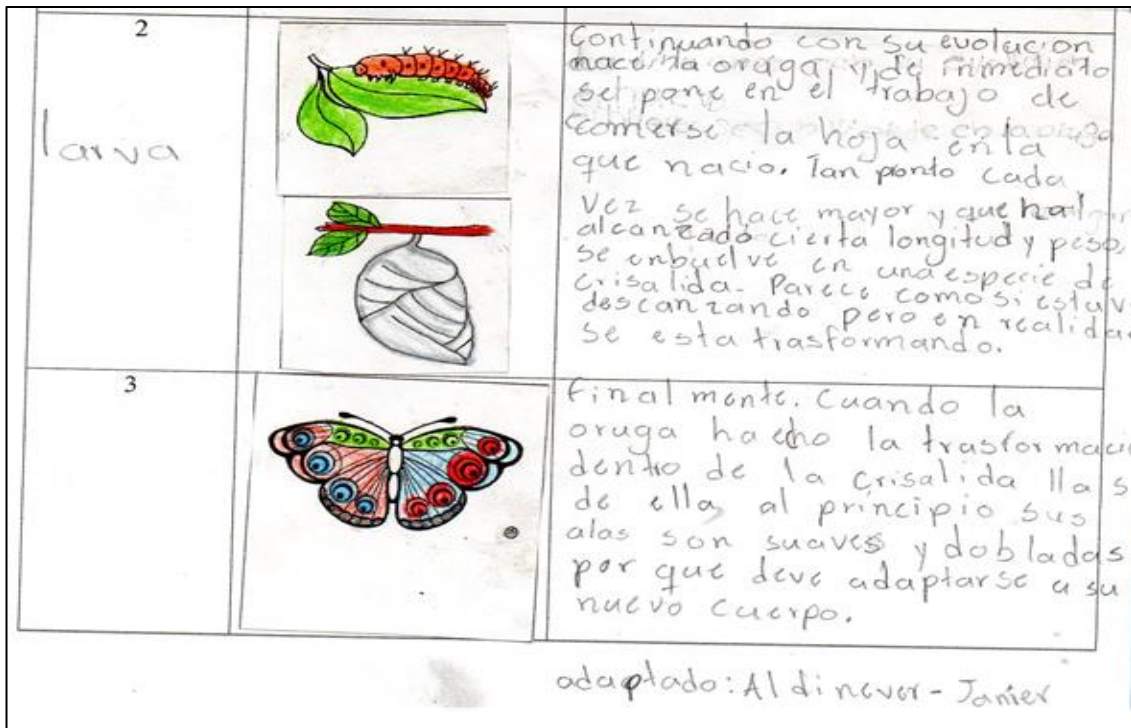 2
larva
Continuando con su evolucion
nace la oruga, y de inmediato
se pone en el trabajo de
comerse la hoja en la
que nacio. Tan ponto cada
vez se hace mayor y que ha
alcanzado cierta longitud y peso,
se enbuelve en una especie de
crisalida. Parece como si estuv
descanzando pero en realidad
se esta trasformando.
3
Finalmente. Cuando la
oruga ha echo la trasformaci
dentro de la crisalida lla s
de ella, al principio sus
alas son suaves y dobladas
por que deve adaptarse a su
nuevo cuerpo.
adaptado: Aldinever - Janier